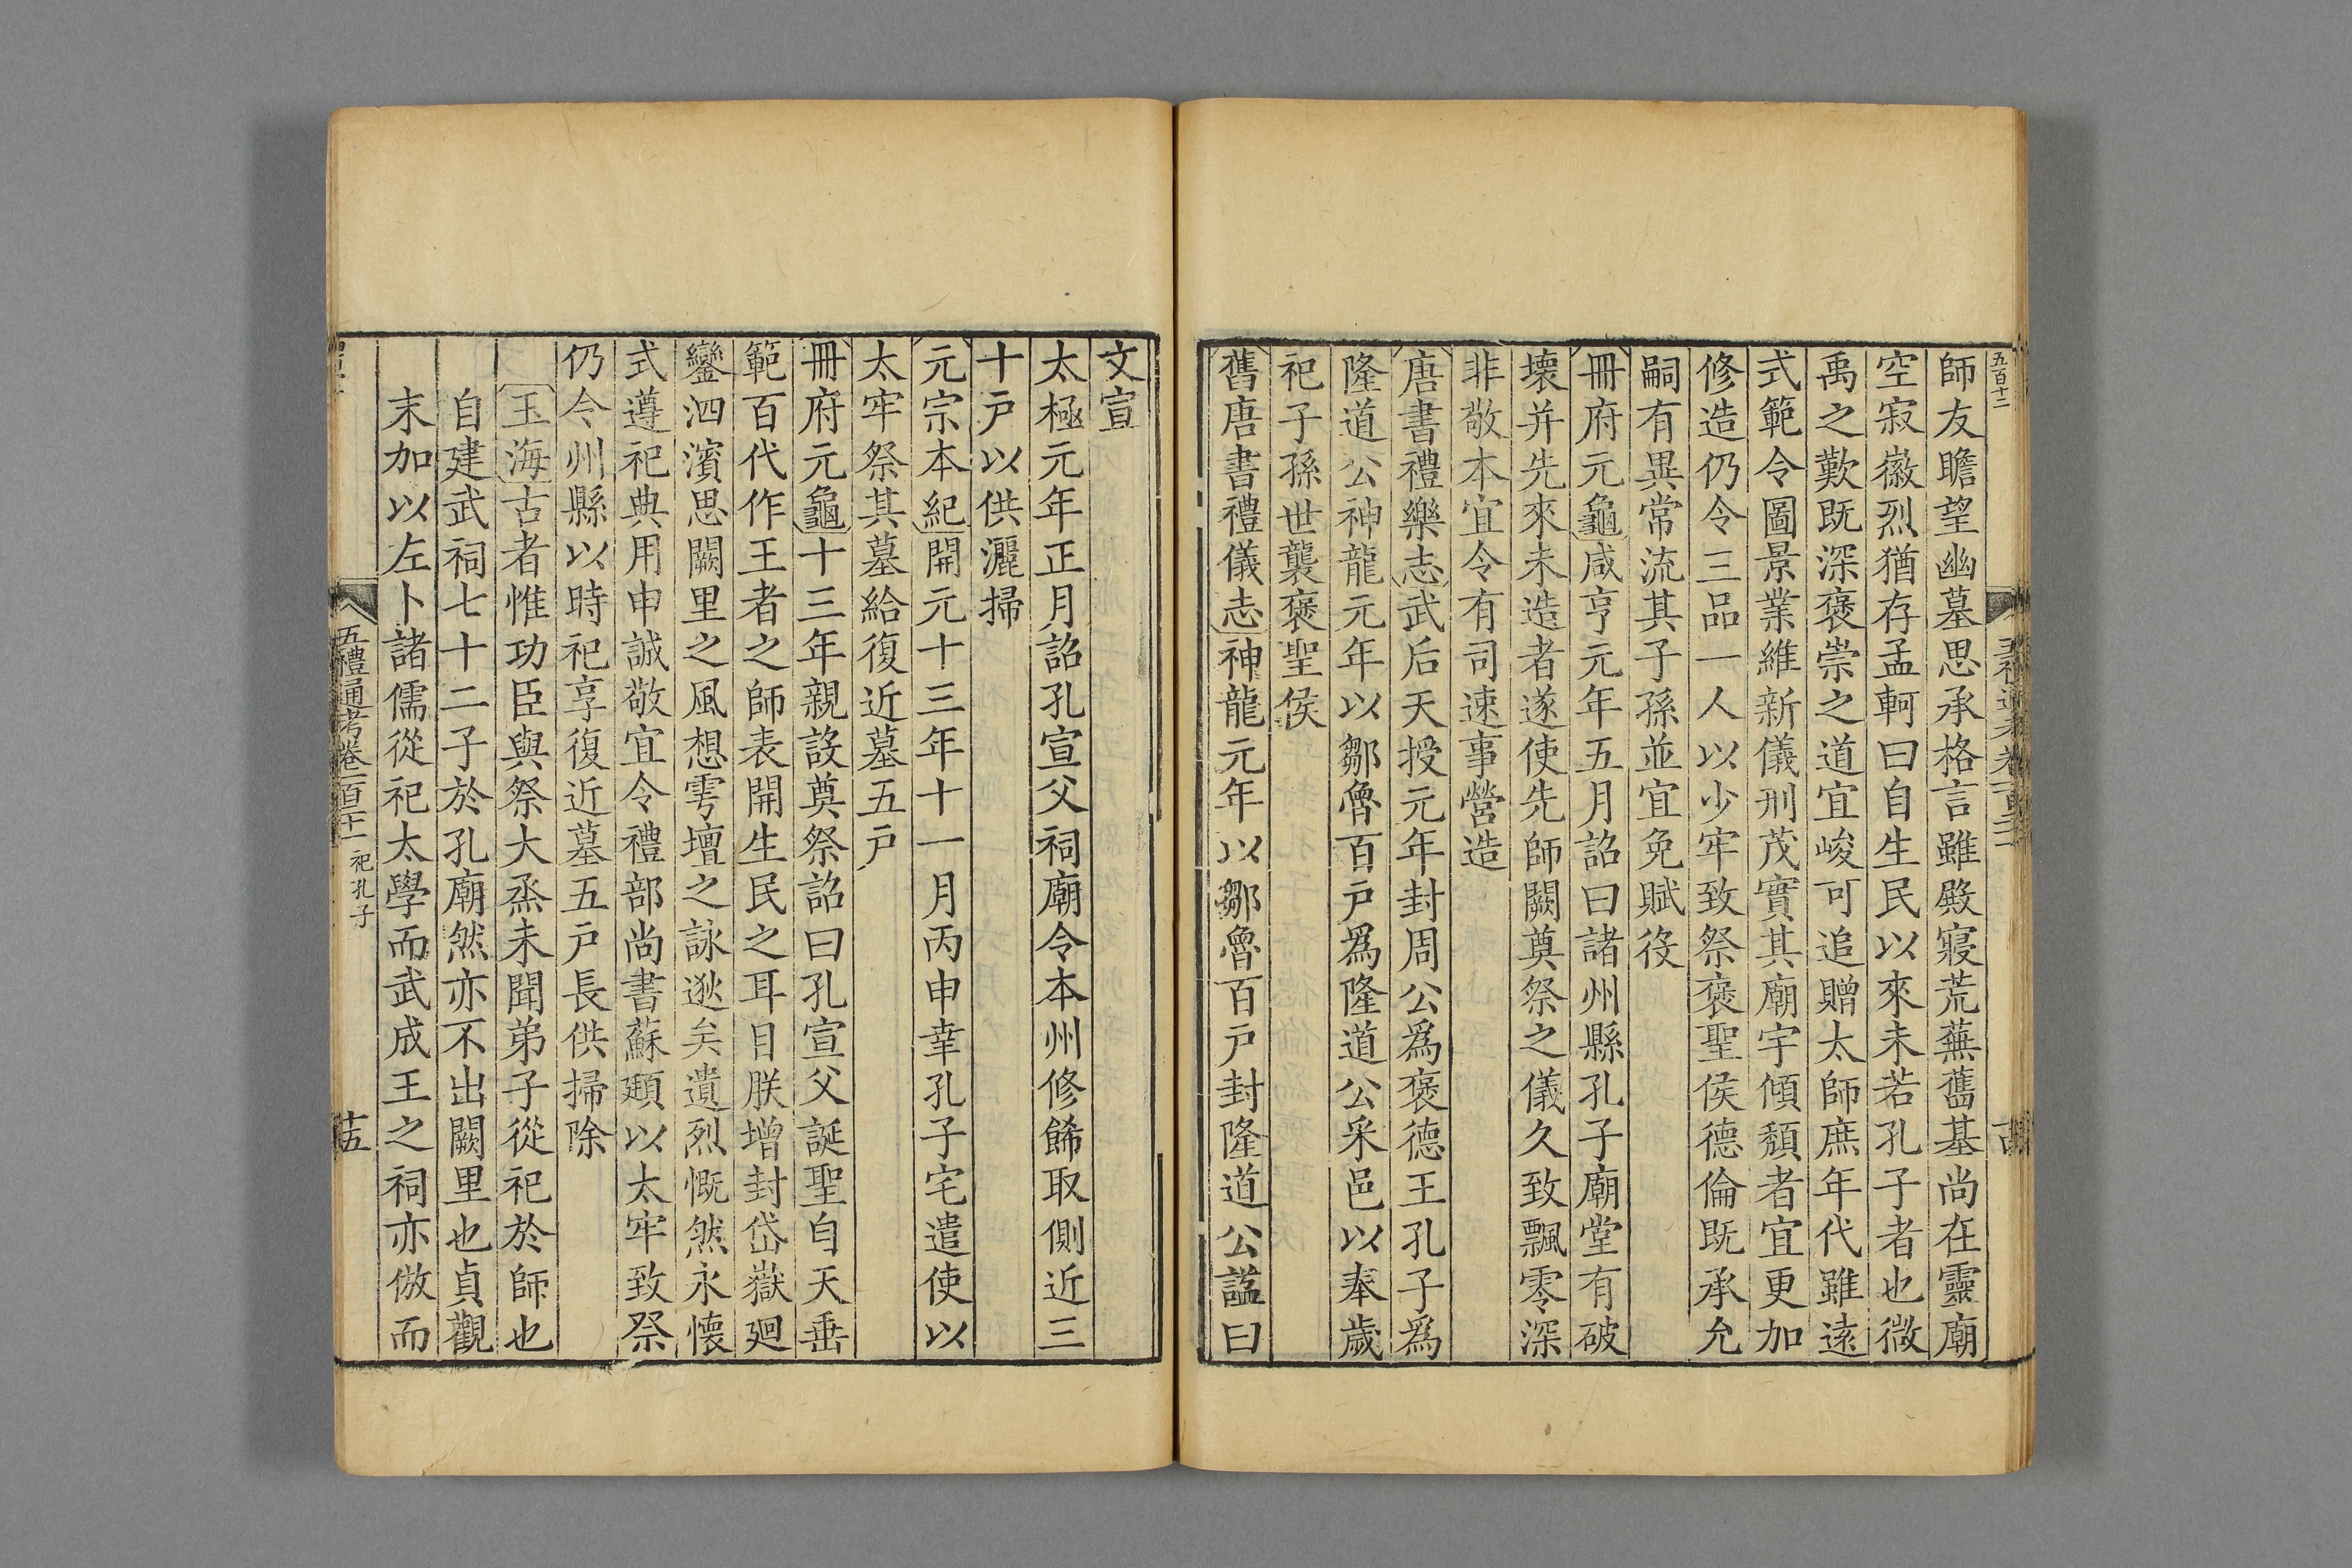 五百十二
師友瞻望幽墓思承格言雖殿寢荒蕪舊基尚在靈廟
空寂徽烈猶存孟軻曰自生民以來未若孔子者也微
禹之歎既深褒崇之道宜峻可追贈太師庶年代雖遠
式範令圖景業維新儀刑茂實其廟宇傾頹者宜更加
修造仍令三品一人以少牢致祭褒聖侯德倫既承允
嗣有異常流其子孫並宜免賦役
冊府元龜咸亨元年五月詔曰諸州縣孔子廟堂有破
壞并先來未造者遂使先師闕奠祭之儀久致飄零深
非敬本宜令有司速事營造
唐書禮樂志武后天授元年封周公爲褒德王孔子爲
隆道公神龍元年以鄒魯百戸爲隆道公采邑以奉歲
祀子孫世襲褒聖侯
舊唐書禮儀志神龍元年以鄒魯百戸封隆道公諡曰
文宣
太極元年正月詔孔宣父祠廟令本州修飾取側近三
十戸以供灑掃
元宗本紀開元十三年十一月丙申幸孔子宅遣使以
太牢祭其墓給復近墓五戸
冊府元龜十三年親設奠祭詔曰孔宣父誕聖自天垂
範百代作王者之師表開生民之耳目朕增封岱嶽廻
鑾泗濱思闕里之風想雩壇之詠逖矣遺烈慨然永懷
式遵祀典用申誠敬宜令禮部尚書蘇頲以太牢致祭
仍令州縣以時祀享復近墓五戸長供掃除
玉海古者惟功臣與祭大烝未聞弟子從祀於師也
自建武祠七十二子於孔廟然亦不出闕里也貞觀
末加以左卜諸儒從祀太學而武成王之祠亦倣而
五禮通考卷一百十一 祀孔子
十五